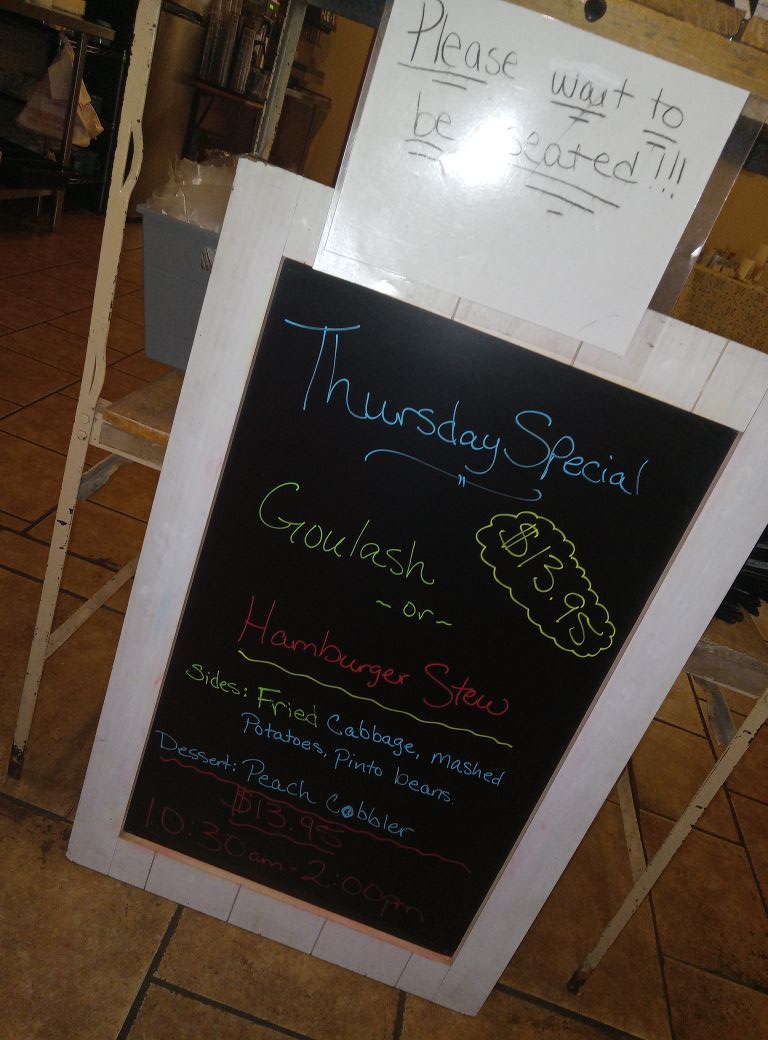 Please wait to
be seated!!!
Thursday Special
Goulash
$13.95
~or~
Hamburger Stew
Sides: Fried Cabbage, mashed
Potatoes, Pinto beans.
Dessert: Peach Cobbler
$13.95
10:30am-2:00pm